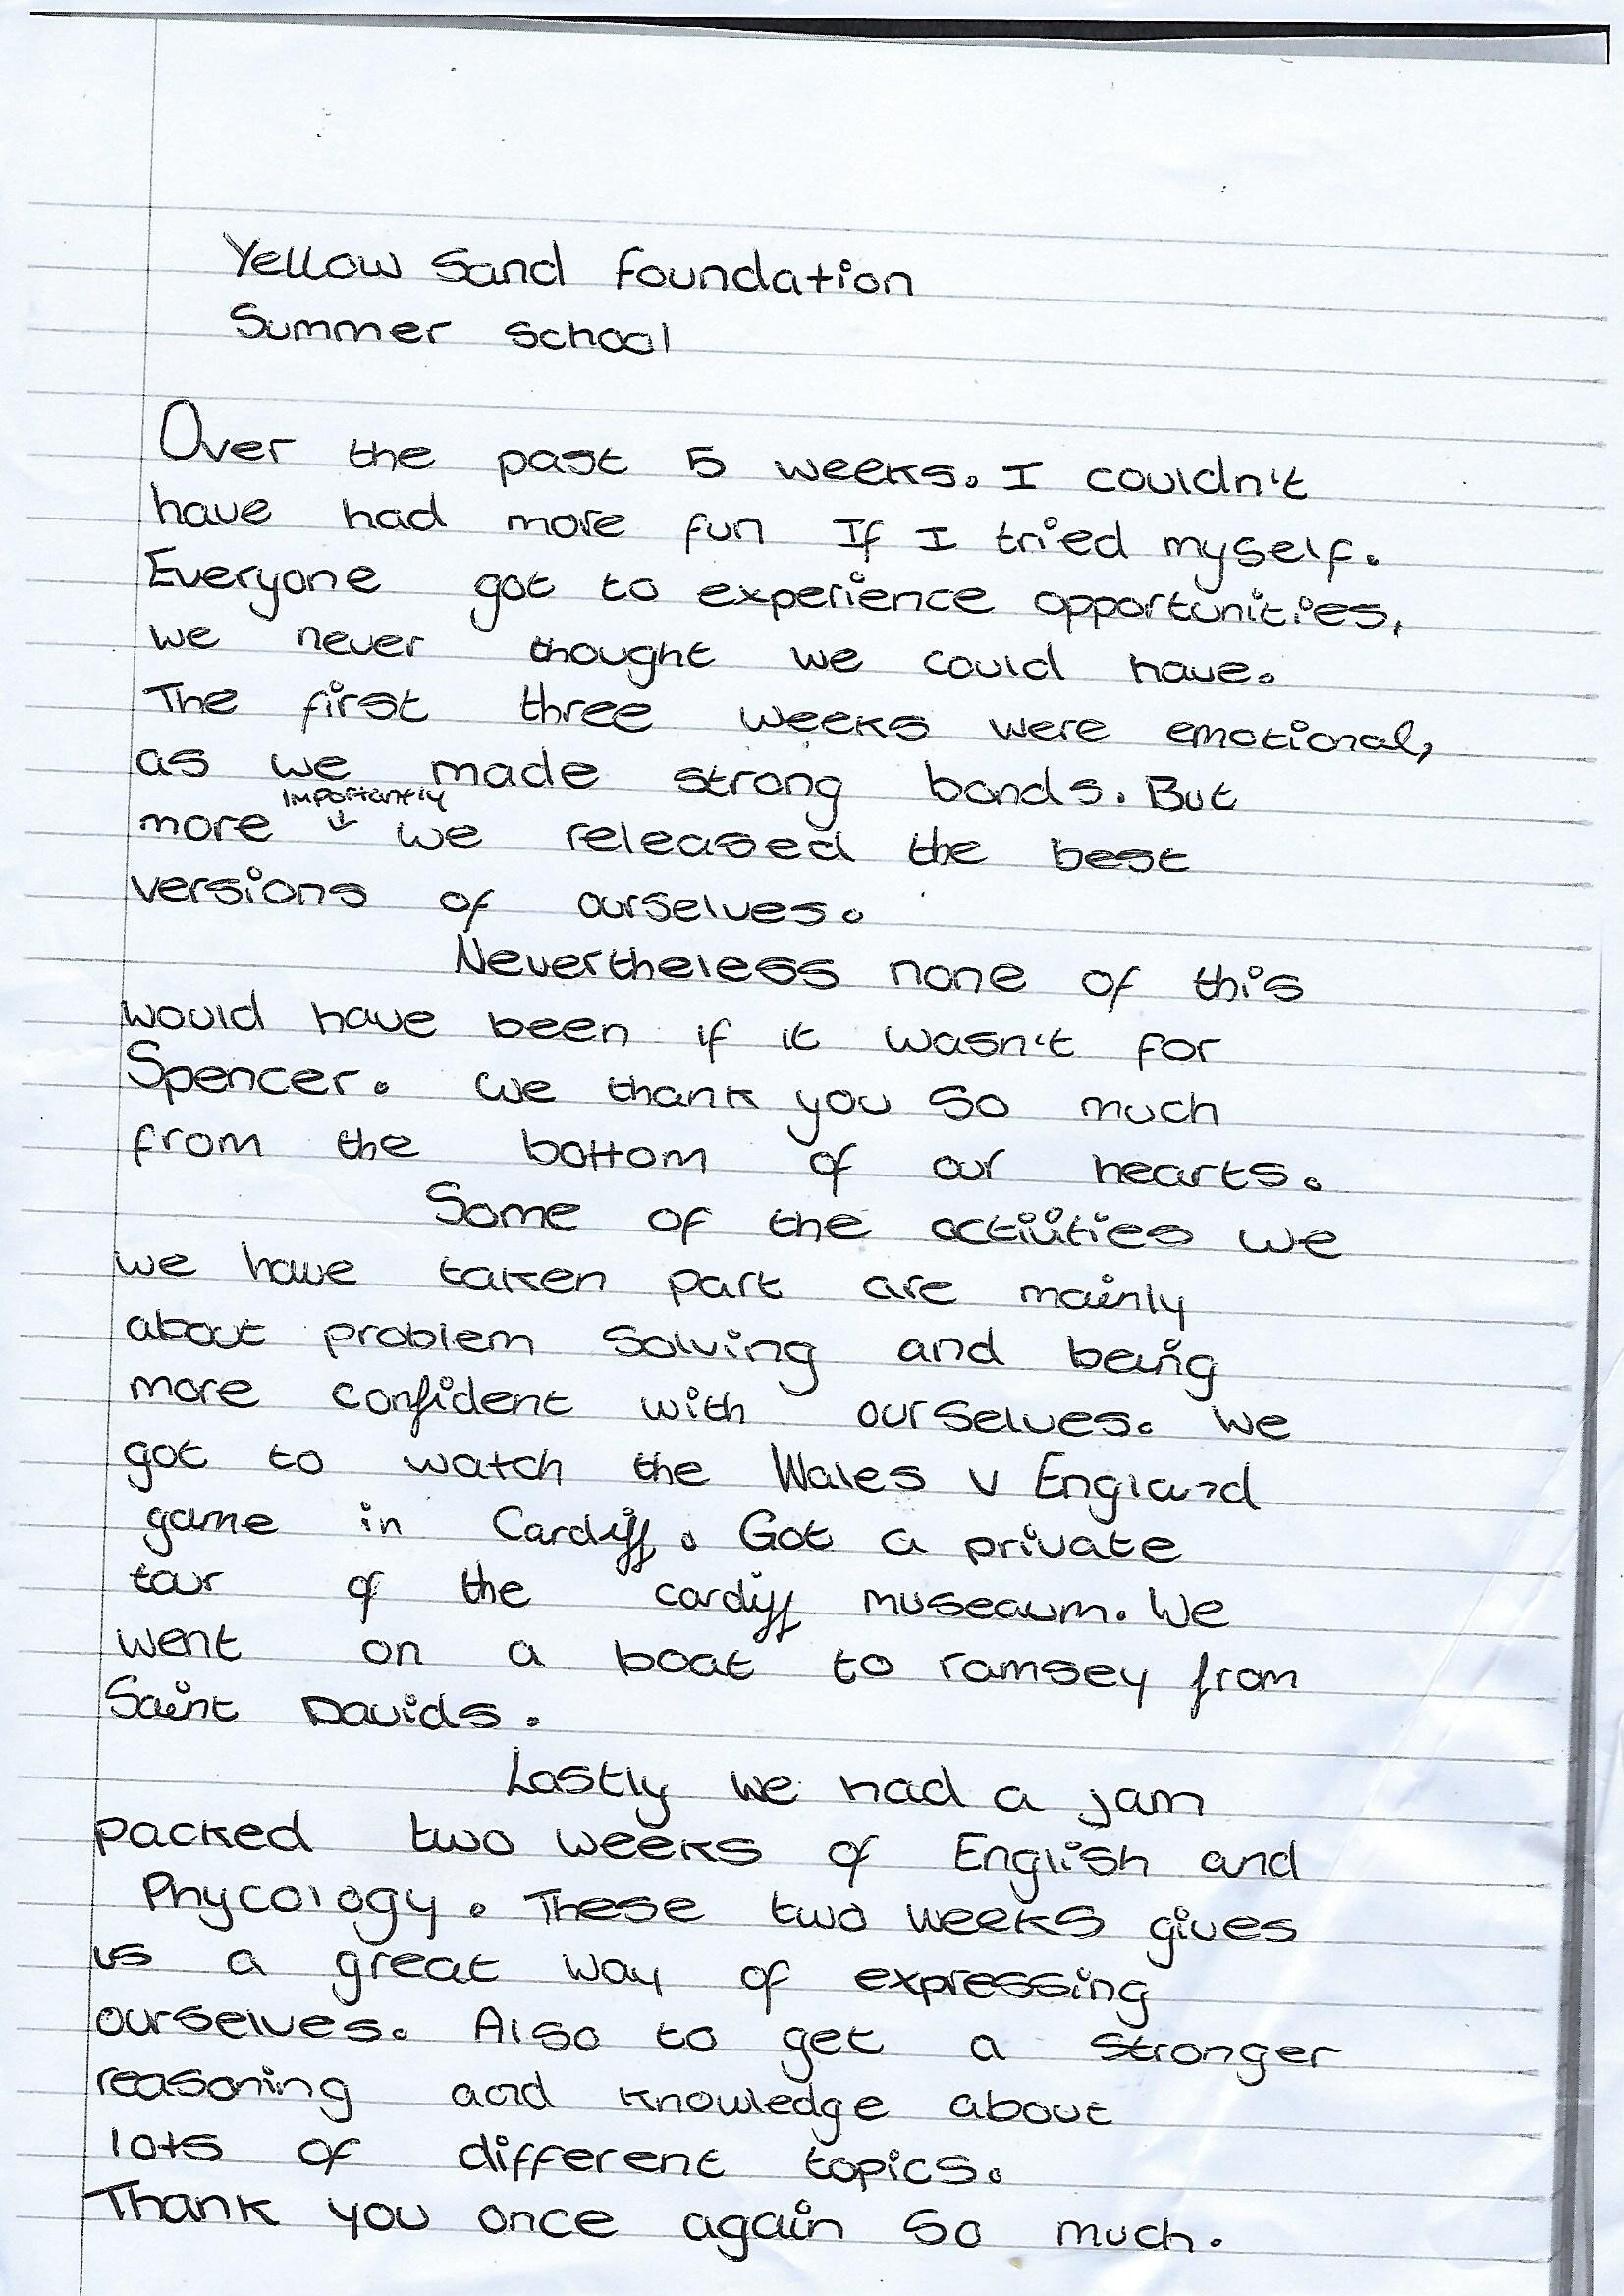 Yellow Sand foundation
Summer School
Over the past 5 weeks. I couldn't
have had more fun If I tried myself.
Everyone got to experience opportunities,
we never thought we could have.
The first three weeks were emotional,
as we made strong bonds. But
importantly
more ↓ we released the best
versions of ourselves.
Nevertheless none of this
would have been if it wasn't for
Spencer. We thank you so much
from the bottom of our hearts.
Some of the activities we
we have taken part are mainly
about problem solving and being
more confident with ourselves. We
got to watch the Wales v England
game in Cardiff. Got a private
tour of the cardiff museaum. We
went on a boat to ramsey from
Saint Davids.
Lastly we had a jam
packed two weeks of English and
Phycology. These two weeks gives
us a great way of expressing
ourselves. Also to get a stronger
reasoning and knowledge about
lots of different topics.
Thank you once again so much.